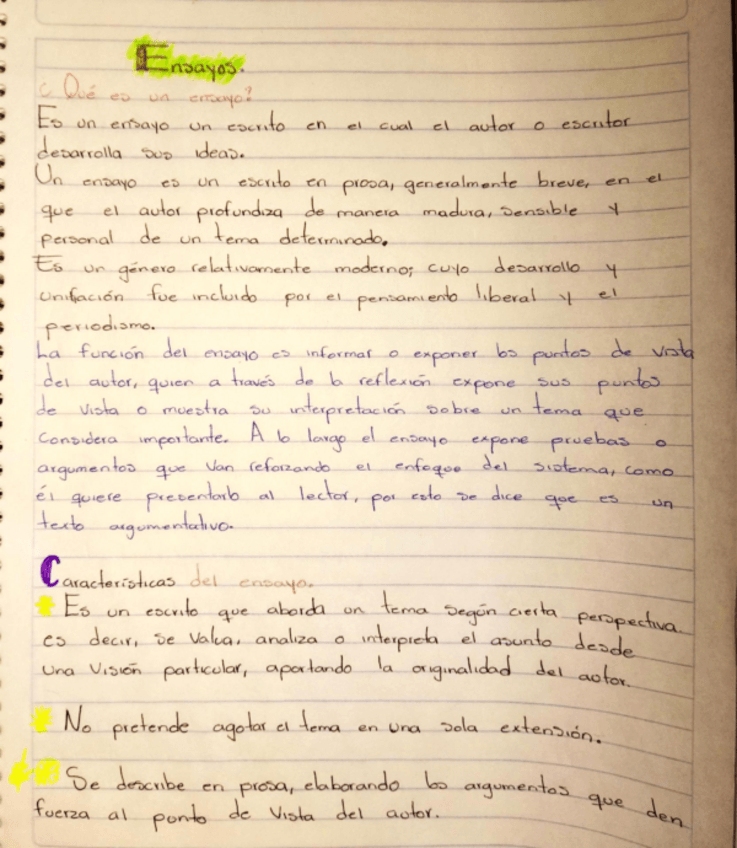 Ensayos.
¿Qué es un ensayo?
Es un ensayo un escrito en el cual el autor o escritor
desarrolla sus ideas.
Un ensayo es un escrito en prosa, generalmente breve, en el
que el autor profundiza de manera madura, sensible y
personal de un tema determinado.
Es un género relativamente moderno; cuyo desarrollo y
unifación fue incluido por el pensamiento liberal y el
periodismo.
La función del ensayo es informar o exponer los puntos de vista
del autor, quien a través de la reflexión expone sus puntos
de vista o muestra su interpretación sobre un tema que
considera importante. A lo largo el ensayo expone pruebas o
argumentos que van reforzando el enfoque del sistema, como
él quiere presentarlo al lector, por esto se dice que es un
texto argumentativo.
Características del ensayo.
Es un escrito que aborda un tema según cierta perspectiva.
es decir, se valua, analiza o interpreta el asunto desde
una visión particular, aportando la originalidad del autor.
No pretende agotar el tema en una sola extensión.
Se describe en prosa, elaborando los argumentos que den
fuerza al punto de vista del autor.